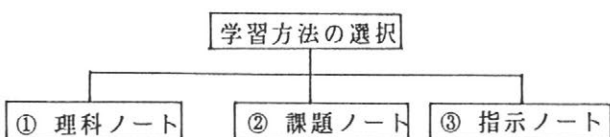 学習方法の選択
① 理科ノート
② 課題ノート
③ 指示ノート